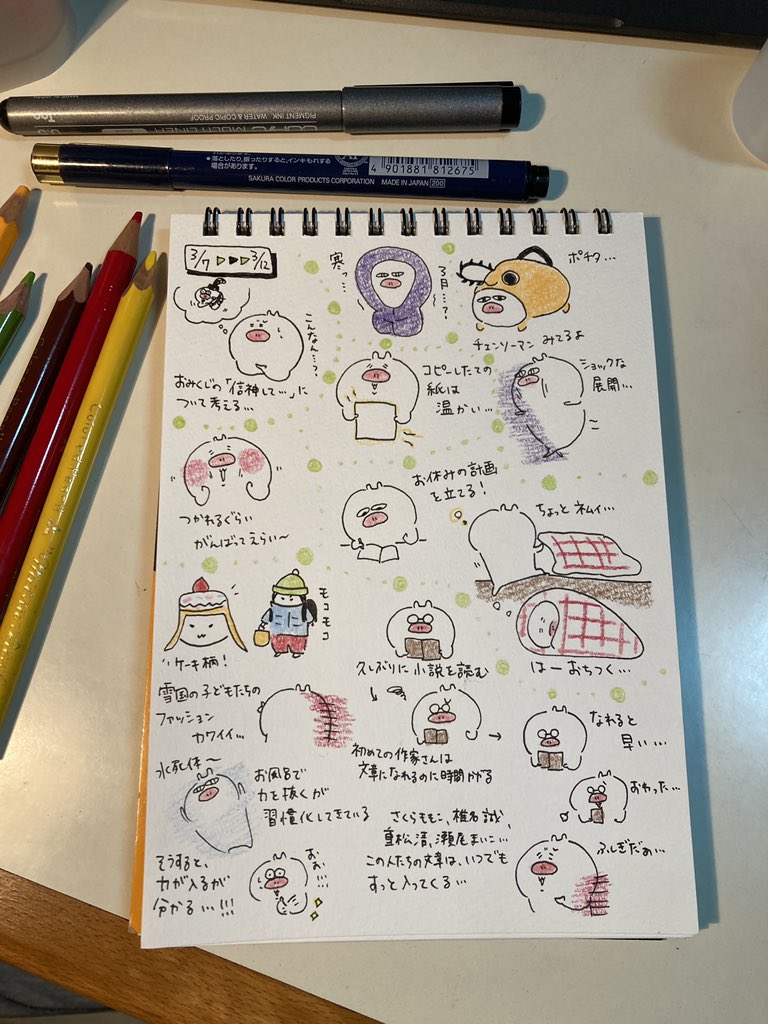 PIGMENT INK WATER & COPIC PROOF
COPIC MULTILINER
0.3
●落としたり、振ったりすると、インキもれする
場合があります。
4 901881 812675
SAKURA COLOR PRODUCTS CORPORATION MADE IN JAPAN 200
3/7 ▷▶▷ 3/12
こんなん…?
おみくじの「信神して…」に
ついて考える…
寒っ…
3月…?
ポチタ…
チェンソーマン みてるよ
コピーしたての
紙は
温かい…
ショックな
展開…
つかれるぐらい
がんばってえらい〜
お休みの計画
を立てる!
ちょっと ネムイ…
はーおちつく…
ケーキ柄!
モコモコ
雪国の子どもたちの
ファッション
カワイイ…
久しぶりに小説を読む
初めての作家さんは
文章になれるのに時間かかる
なれると
早い…
おわった…
水死体〜
お風呂で
力を抜くが
習慣化してきている
そうすると、
力が入るが
分かる…!!!
おぉ!!!
さくらももこ、椎名誠、
重松清、瀬尾まいこ…
この人たちの文章は、いつでも
すっと入ってくる…
ふしぎだぁ…